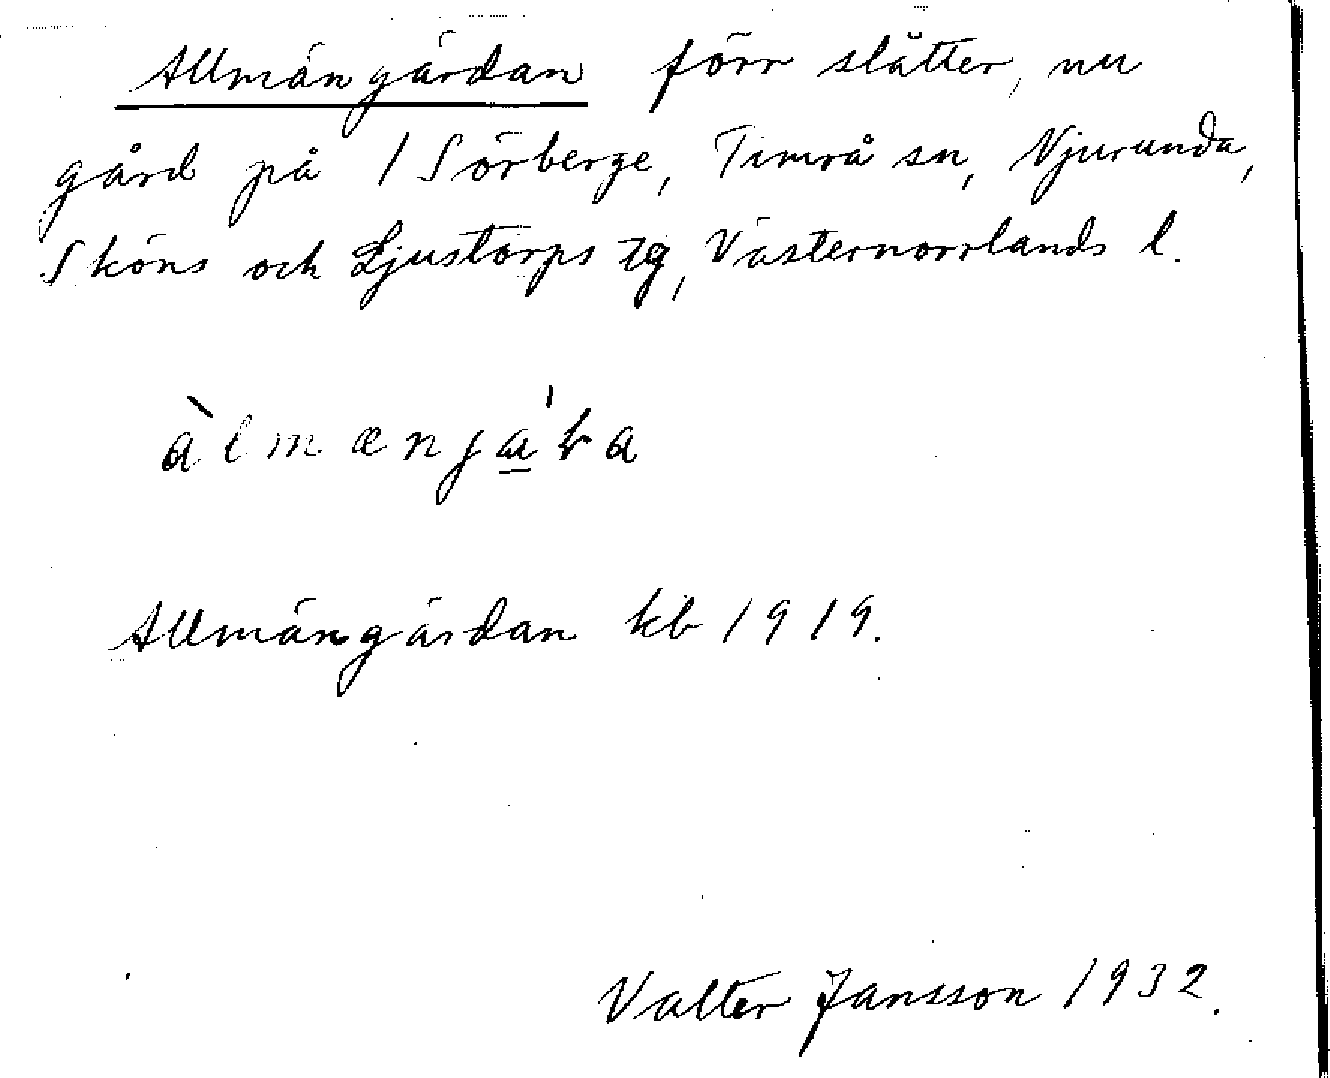 Allmängärdan förr slåtter, nu
gård på 1 Sörberge, Timrå sn, Njurunda,
Sköns och Ljustorps tg, Västernorrlands l.
Allmängärdan kb 1919.
Valter Jansson 1932.